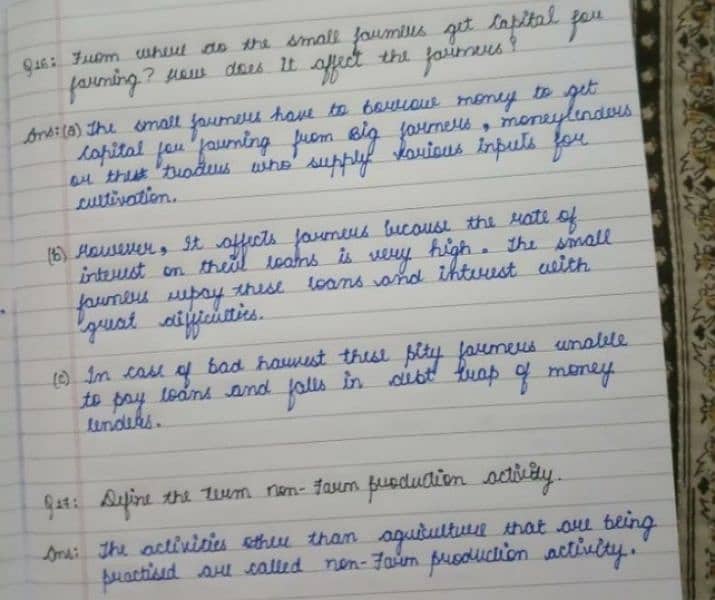 Q16: From where do the small farmers get Capital for
farming? How does it affect the farmers?
Ans:(a) The small farmers have to borrow money to get
capital for farming from big farmers, moneylenders
or the traders who supply various inputs for
cultivation.
(b) However, It affects farmers because the rate of
interest on their loans is very high. The small
farmers repay these loans and interest with
great difficulties.
(c) In case of bad harvest these pity farmers unable
to pay loans and falls in debt trap of money
lenders.
Q17: Define the term non-farm production activity.
Ans: The activities other than agriculture that are being
practised are called non-farm production activity.